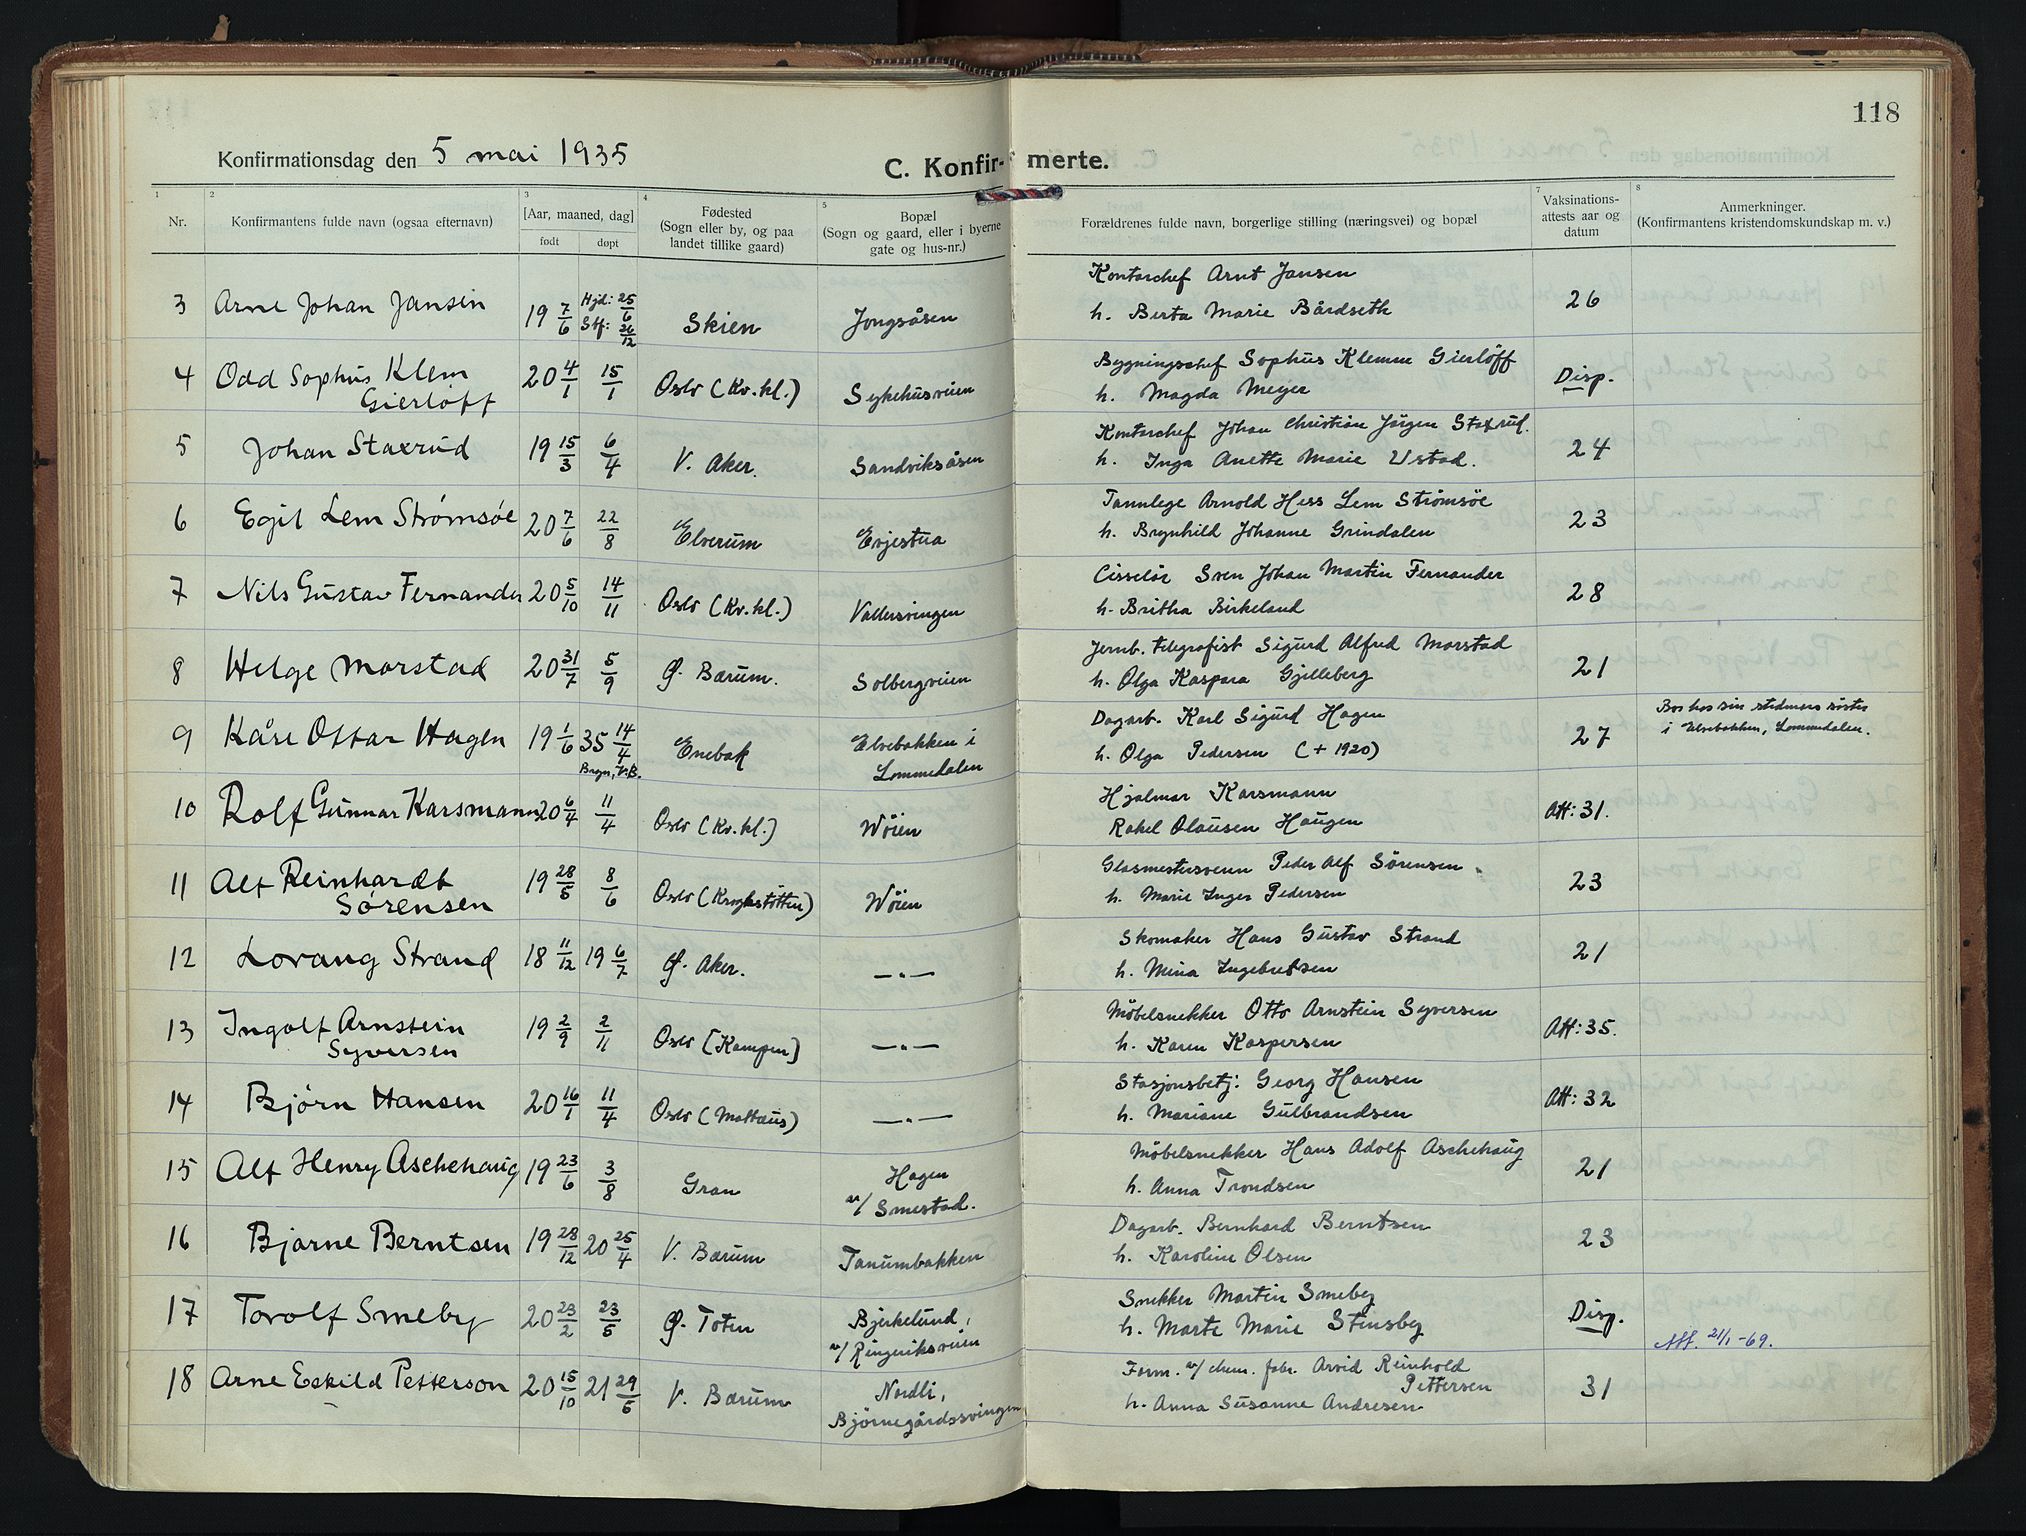 118
Konfirmationsdag den 5 mai 1935
C. Konfir- merte.
1 2 3 4 5 7 8
Nr. Konfirmantens fulde navn (ogsaa efternavn) [Aar, maaned, dag] født døpt Fødested (Sogn eller by, og paa landet tillike gaard) Bopæl (Sogn og gaard, eller i byerne gate og hus-nr.) Forældrenes fulde navn, borgerlige stilling (næringsvei) og bopæl Vaksinations-attests aar og datum Anmerkninger. (Konfirmantens kristendomskundskap m. v.)
3 Arne Johan Jansen 19 7/6 Hjd: 25/6 Stf: 26/12 Skien Jongsåsen Kontorchef Arnt Jansen 26
h. Berta Marie Bårdseth
4 Odd Sophus Klem 20 4/1 15/1 Oslo (Kv.kl.) Sykehusveien Bygningschef Sophus Klemm Gierløff Disp.
Gierløff h. Magda Meyer
5 Johan Staxrud 19 15/3 6/4 V. Aker. Sandviksåsen Kontorchef Johan Christian Jörgen Staxrud. 24
h. Inga Anette Marie Ustad.
6 Egil Lem Strømsøe 20 7/6 22/8 Elverum Evjestua Tannlege Arnold Hess Lem Strømsöe 23
h. Brynhild Johanne Grindalen
7 Nils Gustav Fernander 20 5/10 14/11 Oslo (Kv.kl.) Vallersvingen Cisselör Sven Johan Martin Fernander 28
h. Britha Birkeland
8 Helge Morstad 20 31/7 5/9 Ø. Bærum. Solbergveien Jernb. telegrafist Sigurd Alfred Morstad 21
h. Olga Kaspara Gjilleberg
9 Kåre Ottar Hagen 19 1/6 35 14/4 Bryn, V.B. Enebak Elvebakken i Dagarb. Karl Sigurd Hagen 27 Bor hos sin stedmors søster
Lommedalen h. Olga Pedersen (+ 1920) i Elvebakken, Lommedalen.
10 Rolf Gunnar Karsmann 20 6/4 11/4 Oslo (Kv.kl.) Wöien Hjalmar Karsmann Att: 31.
Rakel Olausen Haugen
11 Alf Reinhardt 19 28/5 8/6 Oslo (Krogkstøtten) Wöien Glasmestersvenn Peder Alf Sörensen 23
Sørensen h. Marie Inger Pedersen
12 Lorang Strand 18 11/12 19 6/7 Ø. Aker. —„— Skomaker Hans Gustav Strand 21
h. Mina Ingebretsen
13 Ingolf Arnstein 19 2/9 2/11 Oslo [Kampen] —„— Möbelsnekker Otto Arnstein Syversen Att: 35.
Syversen h. Karen Kaspersen
14 Bjørn Hansen 20 16/1 11/4 Oslo (Mattæus) —„— Stasjonsbetj. Georg Hansen Att: 32
h. Mariane Gulbrandsen
15 Alf Henry Aschehaug 19 23/6 3/8 Gran Hagen Möbelsnekker Hans Adolf Aschehaug 21
v/ Smestad. h. Anna Trondsen
16 Bjarne Berntsen 19 28/12 20 25/4 V. Bærum Tanumbakken Dagarb. Bernhard Berntsen 23
h. Karoline Olsen
17 Torolf Smeby 20 23/2 23/5 Ø. Toten Bjerkelund, Snekker Martin Smeby Disp.
v/ Ringeriksveien h. Marte Marie Stensby Att. 21/1-69.
18 Arne Eskild Petterson 20 15/10 21 29/5 V. Bærum Nordli, Form. v/ chem. fabr. Arvid Reinhold 31
Bjørnegårdssvingen Pettersen
h. Anna Susanne Andresen